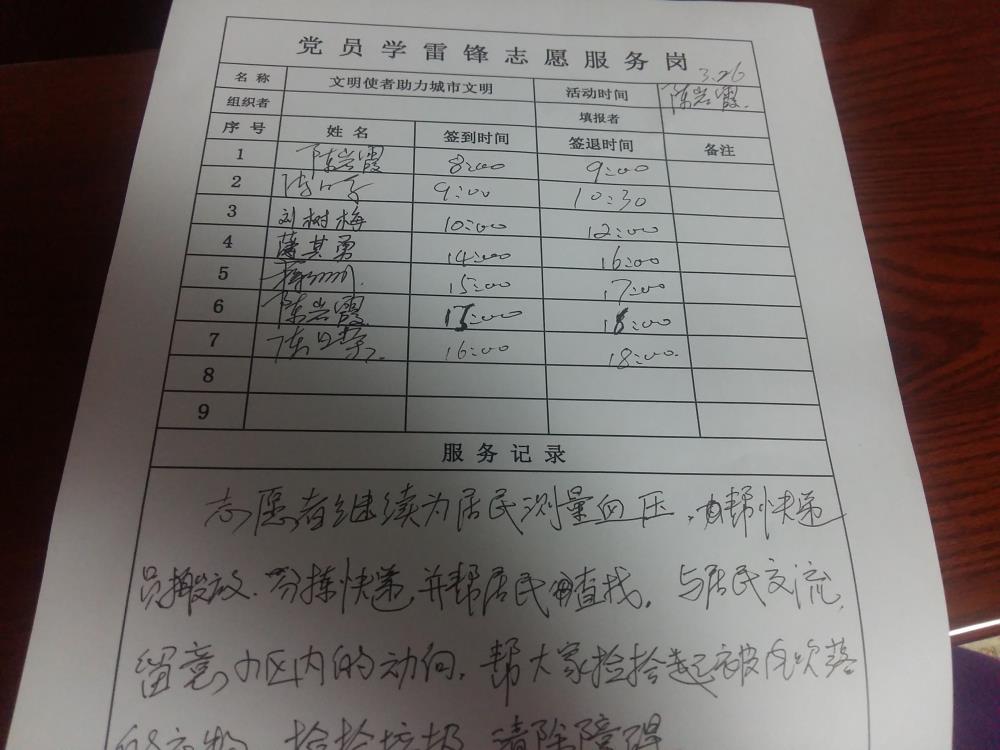 党员学雷锋志愿服务岗
名称 文明使者助力城市文明 活动时间 3.26
组织者 填报者 陈岩霞
序号 姓名 签到时间 签退时间 备注
1 陈岩霞 8:00 9:00
2 9:00 10:30
3 刘树梅 10:00 12:00
4 其勇 14:00 16:00
5 15:00 17:00
6 陈岩霞 15:00 18:00
7 16:00 18:00
8
9
服务记录
志愿者继续为居民测量血压，帮快递
员搬放、分拣快递，并帮居民查找。与居民交流，
留意小区内的动向，帮大家捡拾起被风吹落
的衣物，捡拾垃圾，清除障碍